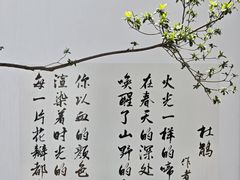 杜鹃
作者
火光一样的啼
在春天的深处
唤醒了山野的
你以血的颜色
渲染着时光的
每一片花瓣都